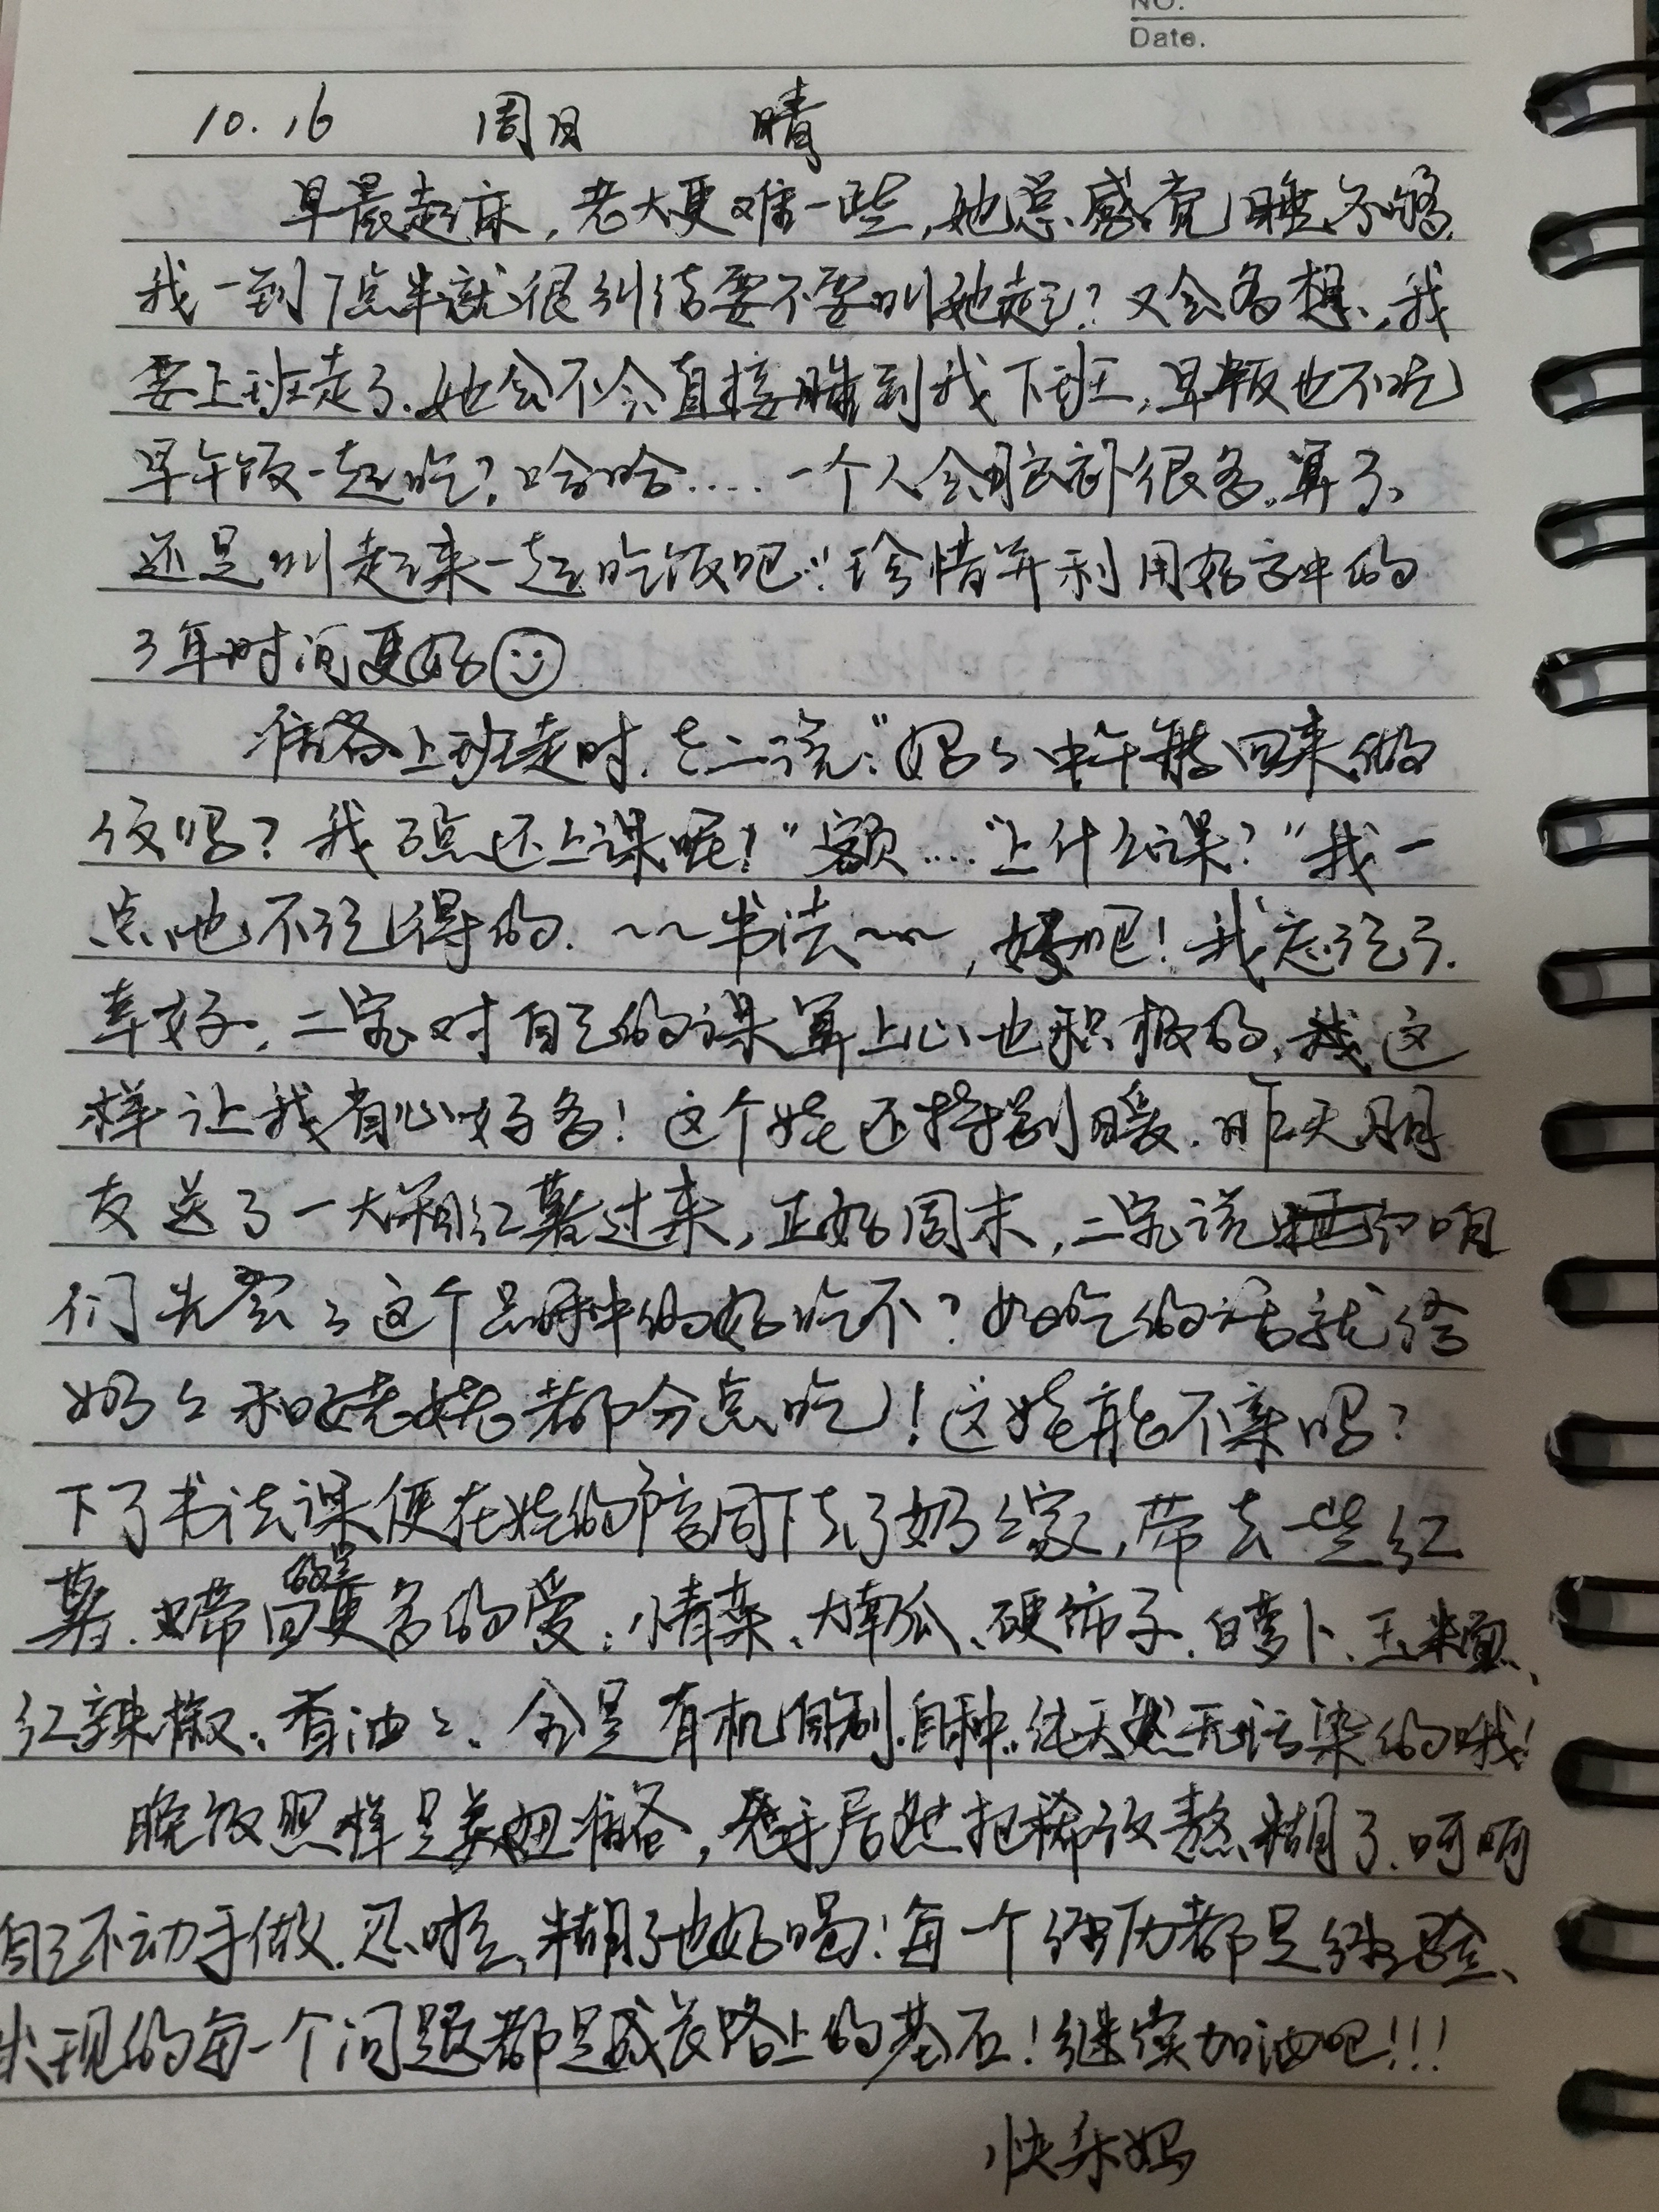 NO.
Date.
10.16 周日 晴
早晨起床,老大更难一些,她总感觉睡不够.
我一到7点半就很纠结要不要叫她起?又会多想,我
要上班走了.她会不会直接睡到我下班,早饭也不吃
早午饭一起吃?哈哈....一个人会脑补很多.算了、
还是叫起来一起吃饭吧!珍惜并利用好高中的
3年时间更好
准备上班走时.老二说:"妈妈中午能回来做
饭吗?我3点还上课呢!"额...."上什么课?"我一
点也不记得的.~~书法~~,好吧!我忘记了.
幸好.二宝对自己的课算上心也积极的,这
样让我省心好多!这个娃还特别暖.昨天朋
友送了一大箱红薯过来,正好周末,二宝说咱
们先尝々这个品种的好吃不?好吃的话就给
奶々和姥姥都分点吃!这娃能不亲吗?
下了书法课便在娃的陪同下去了奶々家,带去一些红
薯.带回的是更多的爱:小青菜、大南瓜、硬柿子.白萝卜、玉米面、
红辣椒、香油々、全是有机自制.自种.纯天然无污染的哦!
晚饭照样是美妞准备,老手居然把稀饭熬糊了.呵呵
自己不动手做.忍啦、糊了也好喝!每一个经历都是经验、
出现的每一个问题都是成长路上的基石!继续加油吧!!!
快乐妈